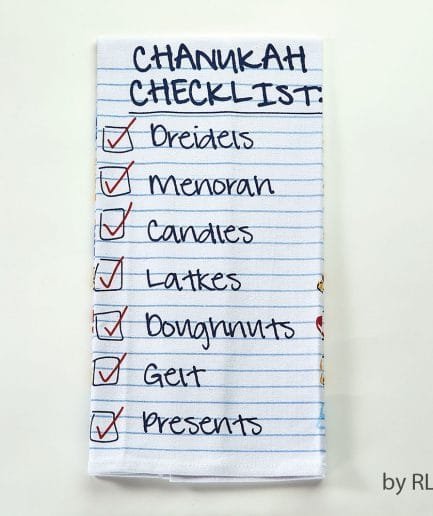 CHANUKAH
CHECKLIST:
Dreidels
Menorah
Candles
Latkes
Doughnuts
Gelt
Presents
by RL